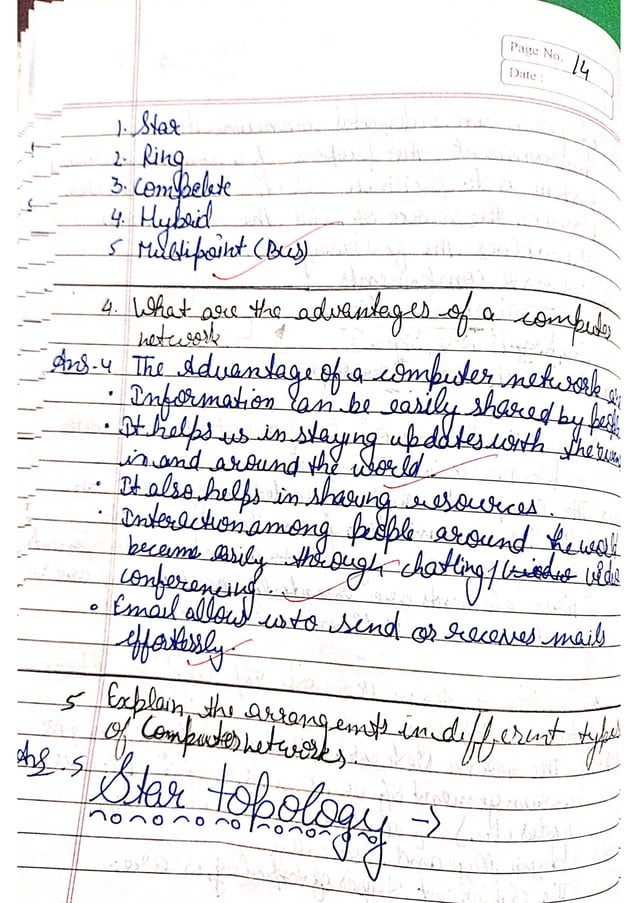 Page No. 14
Date :
1. Star
2. Ring
3. Compelete
4. Hybrid
5 Multipoint (Bus)
4. What are the advantages of a computer
network
Ans.4 The Advantage of a computer network
• Information can be easily shared by
• It helps us in staying updates with the
in and around the world.
• It also helps in sharing resources.
• Interaction among people around the world
became easily through chatting/ video
conferencing.
• Email allow us to send or receives mails
effortlessly.
5 Explain the arrangemts in different types
of Computer networks.
Ans.5
Star topology →